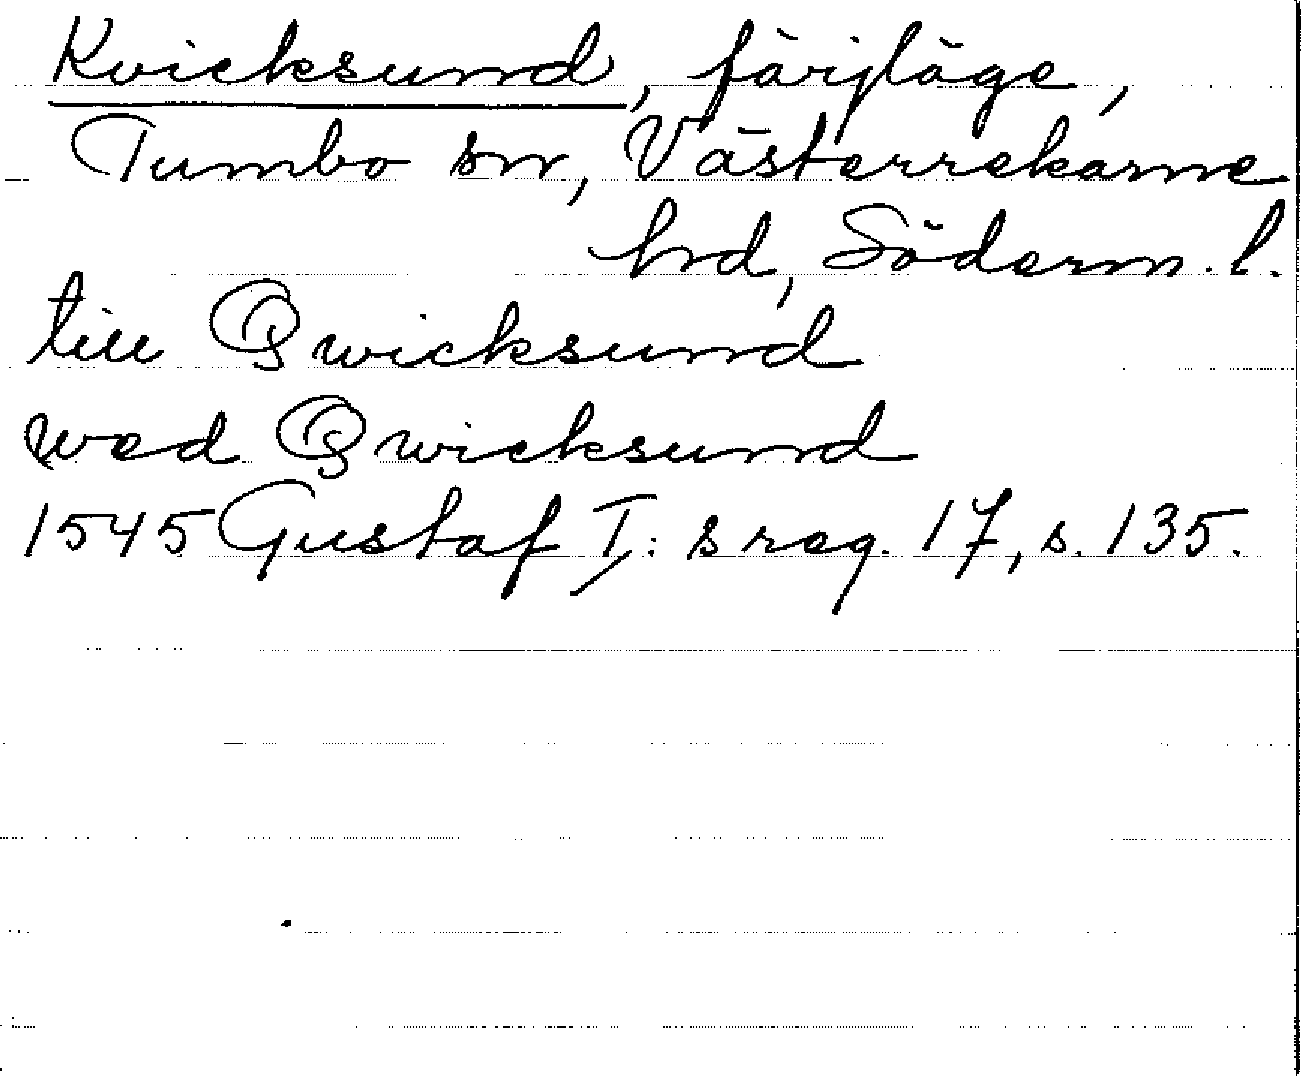 Kvicksund, färjläge,
Tumbo sn, Västerrekarne
hd, Söderm. l.
till Qwicksund
wed Qwicksund
1545 Gustaf I: s reg. 17, s. 135.